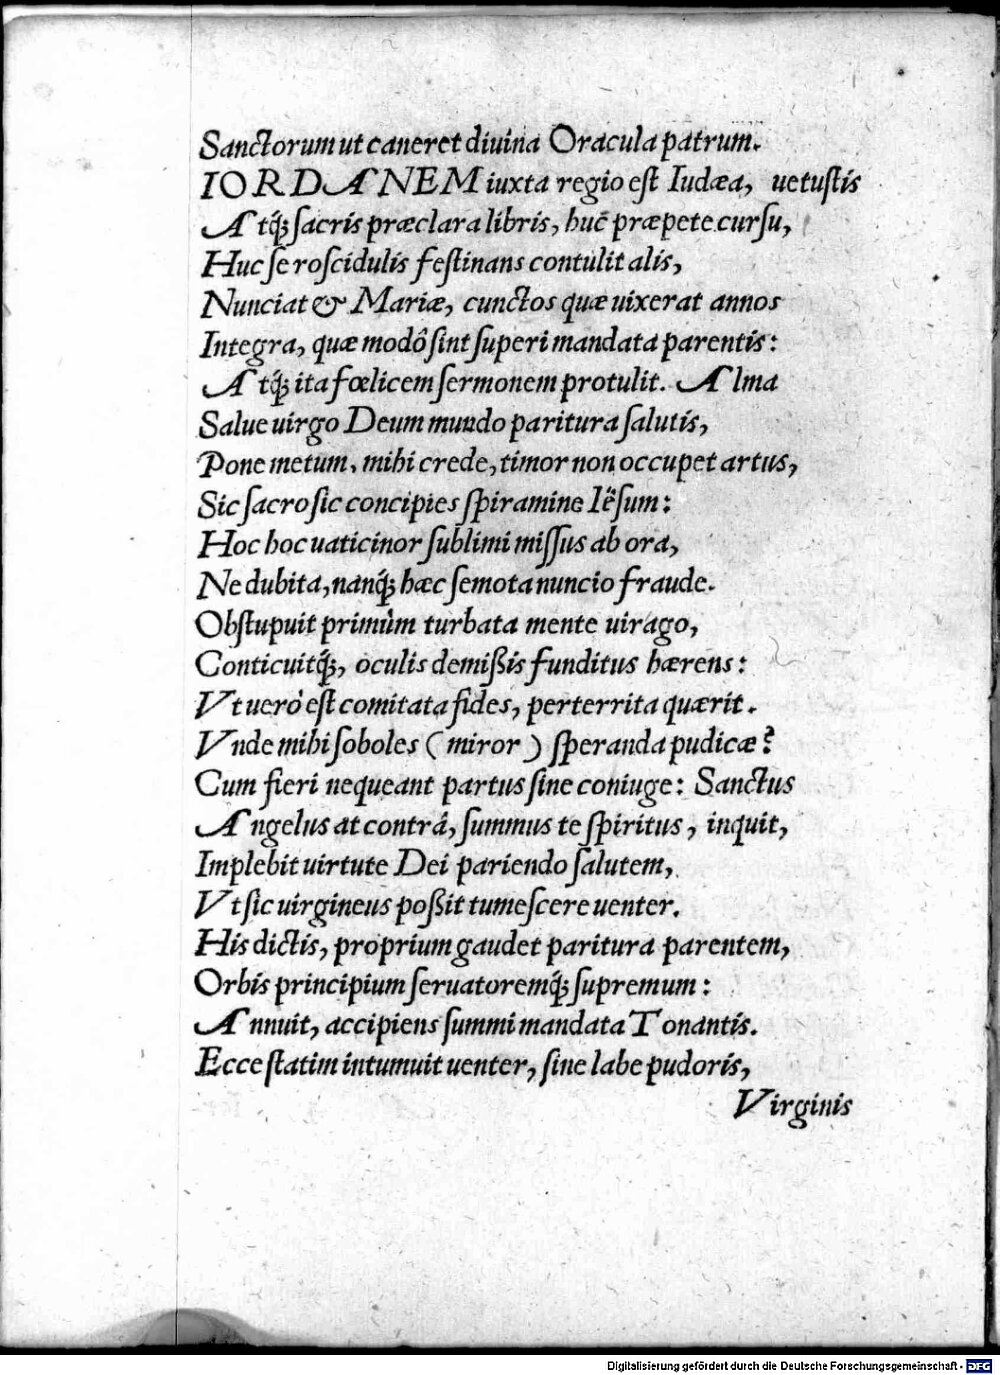 Sanctorum ut caneret diuina Oracula patrum.
IORDANEM iuxta regio est Iudæa, uetustis
Atq́; sacris præclara libris, huc̄ præpete cursu,
Huc se roscidulis festinans contulit alis,
Nunciat & Mariæ, cunctos quæ uixerat annos
Integra, quæ modô sint superi mandata parentis:
Atq́; ita fœlicem sermonem protulit. Alma
Salue uirgo Deum mundo paritura salutis,
Pone metum, mihi crede, timor non occupet artus,
Sic sacro sic concipies spiramine Iësum:
Hoc hoc uaticinor sublimi missus ab ora,
Ne dubita, nanq́; hæc semota nuncio fraude.
Obstupuit primùm turbata mente uirago,
Conticuitq́;, oculis demißis funditus hærens:
Vt uerò est comitata fides, perterrita quærit.
Vnde mihi soboles (miror) speranda pudicæ?
Cum fieri nequeant partus sine coniuge: Sanctus
Angelus at contrâ, summus te spiritus, inquit,
Implebit uirtute Dei pariendo salutem,
Vt sic uirgineus poßit tumescere uenter.
His dictis, proprium gaudet paritura parentem,
Orbis principium seruatoremq́; supremum:
Annuit, accipiens summi mandata Tonantis.
Ecce statim intumuit uenter, sine labe pudoris,
Virginis
Digitalisierung gefördert durch die Deutsche Forschungsgemeinschaft - DFG